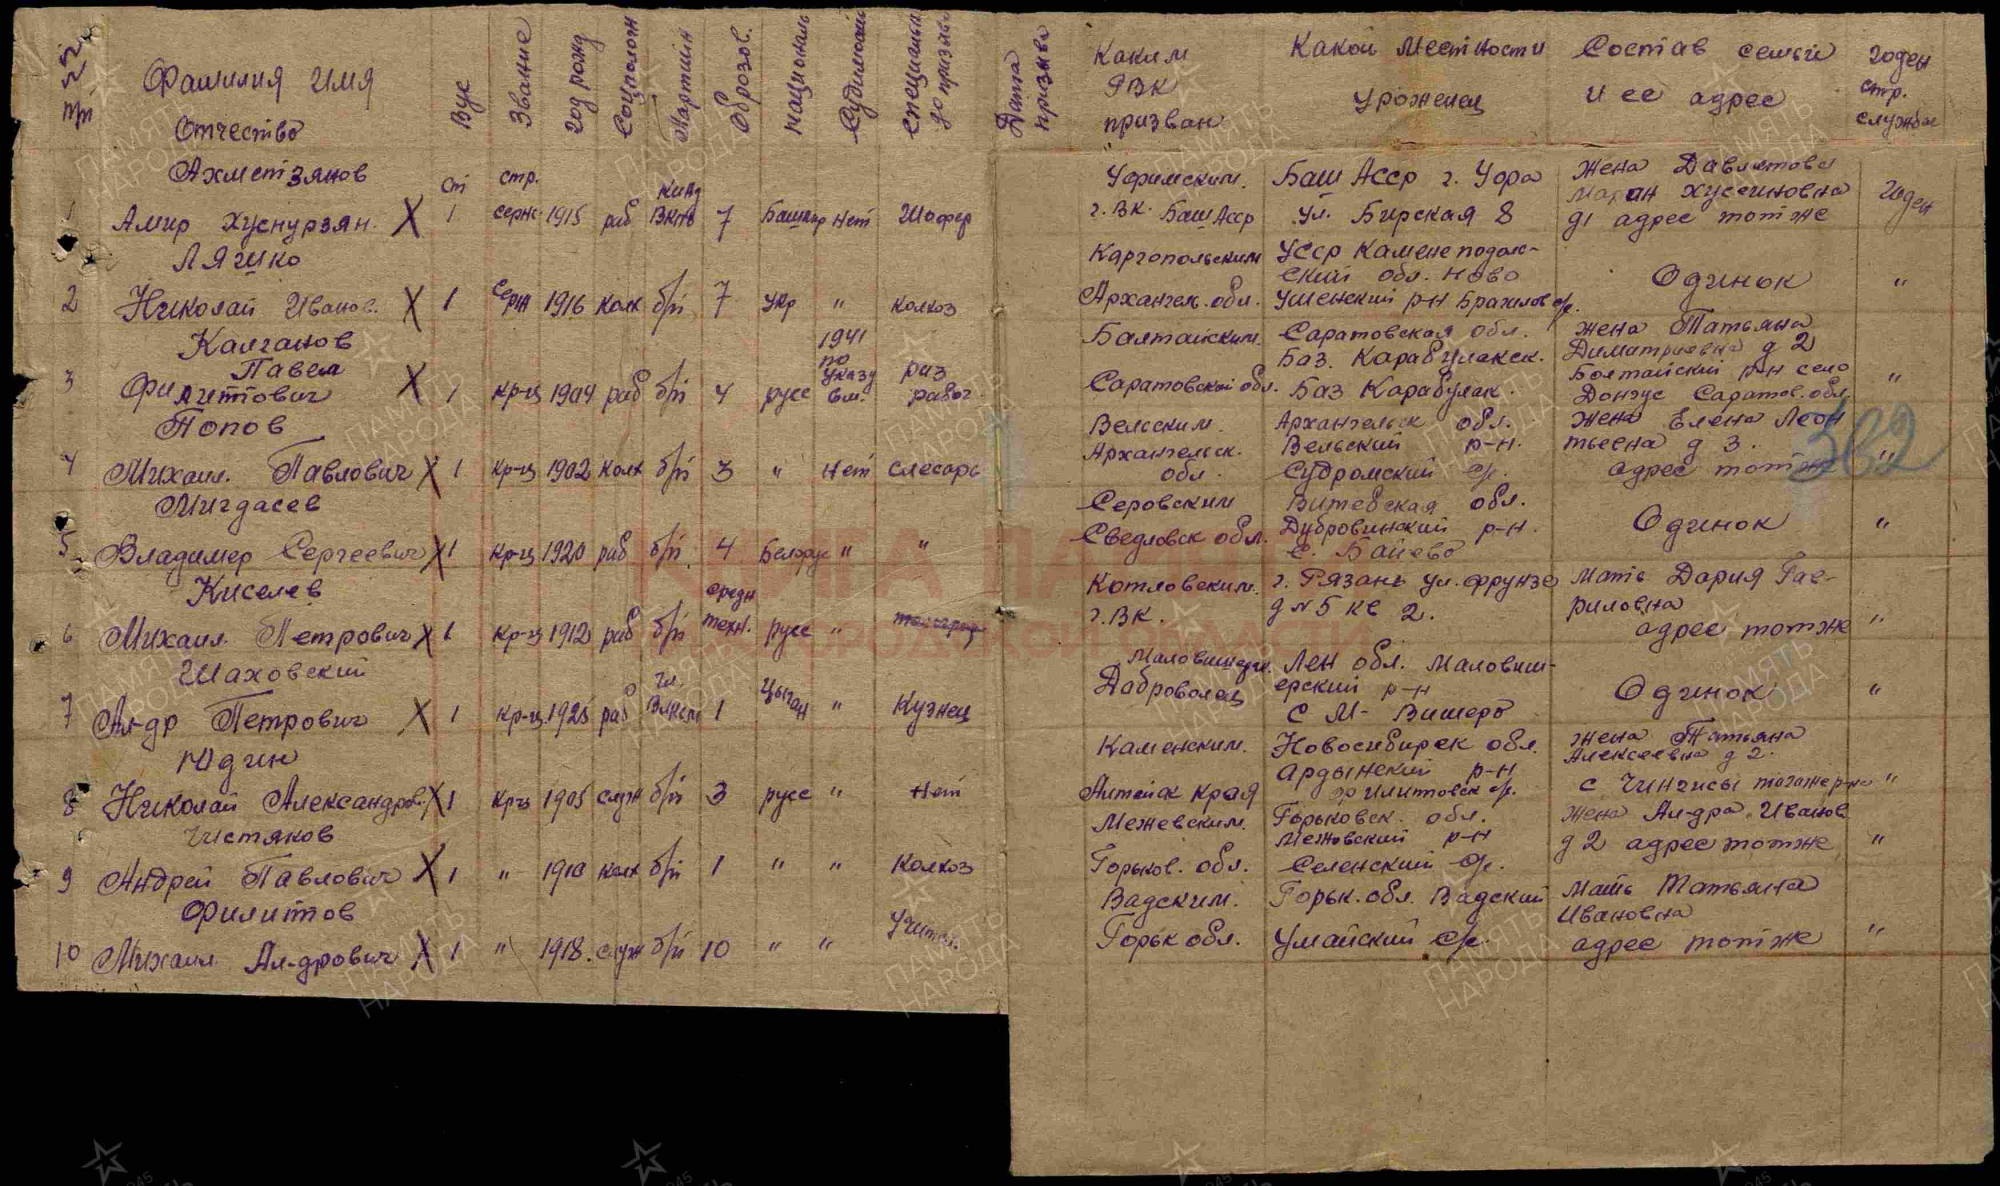 №№ п/п Фамилия имя Отчество Вус Звание год рожд Соцполож Партийн Образов. Национальн Судимость Специальн до призыва Дата призыва Каким РВК призван Какой местности уроженец Состав семьи и ее адрес годен стр. службе
Ахметзянов ст стр. канд Уфимским. Баш Асср г. Уфа жена Давлятова
1 Амир Хуснурзян. X 1 серж 1915 раб ВКПб 7 Башкир нет Шофер г. ВК. Баш Асср ул. Бирская 8 Хусеиновна д1 адрес тот же годен
Ляшко Каргопольским Усср Каменеподоль-
ский обл. Ново
2 Николай Иванов. X 1 серж 1916 колх б/п 7 укр " колхоз Архангельск. обл. ушенский р-н Браилов с/с. Одинок "
Калганов 1941 Балтайским. Саратовская обл. жена Татьяна
Павел по указу раз Баз. Карабулакск. Диматриевна д 2
3 Филиппович X 1 кр-ц 1904 раб б/п 4 русс вм. рабоч. Саратовской обл. Баз Карабулак. Болтайский р-н село Донгус Саратов. обл. "
Попов Вельским. Архангельск обл. жена Елена Леон
4 Михаил. Павлович X 1 кр-ц 1902 колх б/п 3 " нет слесарь Архангельск. обл. Вельский р-н. Судромский с/с. тьевна д 3. адрес тот же "
382
Мигдасев Серовским Витебская обл.
5 Владимер Сергеевич X 1 кр-ц 1920 раб б/п 4 Белорус " " Свердловск обл. Дубровинский р-н. с. Баиево Одинок "
Киселев средн Котловским. г. Рязань ул. Фрунзе мать Дария Гав-
6 Михаил. Петрович X 1 кр-ц 1912 раб б/п техн. русс " г. ВК. д № 5 кв 2. риловна адрес тот же "
Шаховский чл. Маловишерск. Лен обл. Маловиш-
7 Ал-др Петрович X 1 кр-ц. 1925 раб Влксм 1 цыган " Кузнец Доброволец ерский р-н с М- Вишера Одинок "
Юдин Каменским. Новосибирск обл. жена Татьяна
Ардынский р-н Алексеевна д 2.
8 Николай Александров. X 1 кр-ц 1905 служ б/п 3 русс " нет Алтайск края Филиповск с/с. с Чингисы того же р-на "
Чистяков Межевским. Горьковск. обл. жена Ал-дра Иванов
Межовский р-н
9 Андрей Павлович X 1 " 1910 колх б/п 1 " " Колхоз Горьков. обл. Селенский с/с. д 2 адрес тот же "
Филипов Вадским. Горьк. обл. Вадский мать Татьяна
Учител. Ивановна
10 Михаил Ал-дрович X 1 " 1918. служ б/п 10 " " Горьк обл. Умайский с/с. адрес тот же "
КНИГА ПАМЯТИ
НОВГОРОДСКОЙ ОБЛАСТИ
ПАМЯТЬ НАРОДА